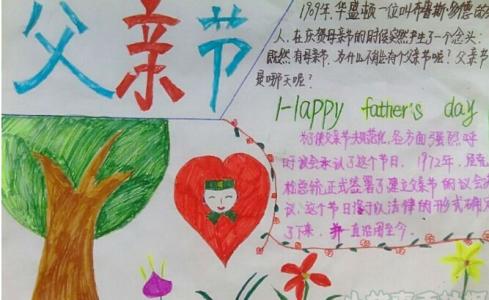 父亲节
1909年,华盛顿一位叫布鲁斯多德的
人,在庆贺母亲节的时候突然产生了一个念头:
既然有母亲节,为什么不能有个父亲节呢?父亲节
是哪天呢?
Happy father's day
为了使父亲节规范化,各方面强烈呼
吁议会承认了这个节日。1972年,尼克
松总统正式签署了建立父亲节的议会
议。这个节日终于以法律的形式确定
了下来,并一直沿用至今。